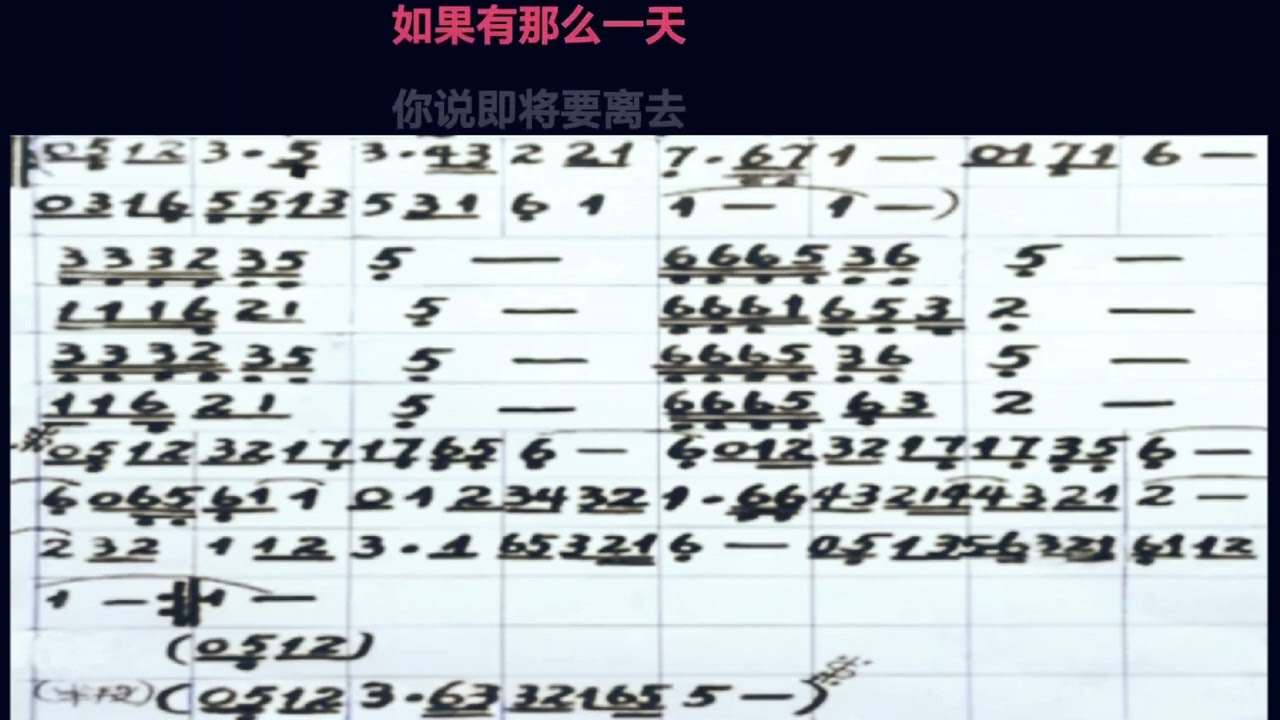 如果有那么一天
你说即将要离去
0512 3·5 3·43 2 21 7·67 1 — 0171 6 —
0316 5513 5 31 6 1 1 — 1 —)
3332 35 5 — 6665 36 5 —
1116 21 5 — 6661 653 2 —
3332 35 5 — 6665 36 5 —
116 21 5 — 6665 63 2 —
0512 3217 1765 6 — 6 012 3217 1735 6 —
6 065 61 1 0 1 2 34 32 1·66 432 14 43 21 2 —
2 32 1 12 3·1 65321 6 — 0513 56321 6112
1 — 1 —
(0512)
(0512 3·63 32165 5 —)